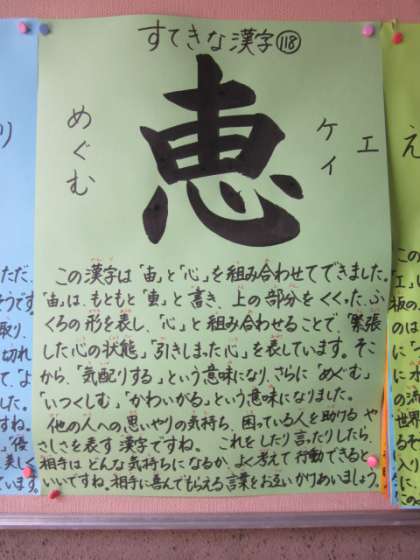 すてきな漢字118
恵
めぐむ
ケイ
エ
この漢字は「叀」と「心」を組み合わせてできました。
「叀」は、もともと「東」と書き、上の部分をくくった、ふ
くろの形を表し、「心」と組み合わせることで、「緊張
した心の状態」「引きしまった心」を表しています。そこ
から、「気配りする」という意味になり、さらに「めぐむ」
「いつくしむ」「かわいがる」という意味になりました。
他の人への思いやりの気持ち、困っている人を助けるや
さしさを表す漢字ですね。これをしたり言ったりしたら、
相手はどんな気持ちになるか、よく考えて行動できると
いいですね。相手に喜んでもらえる言葉をお互いかけあいましょう。